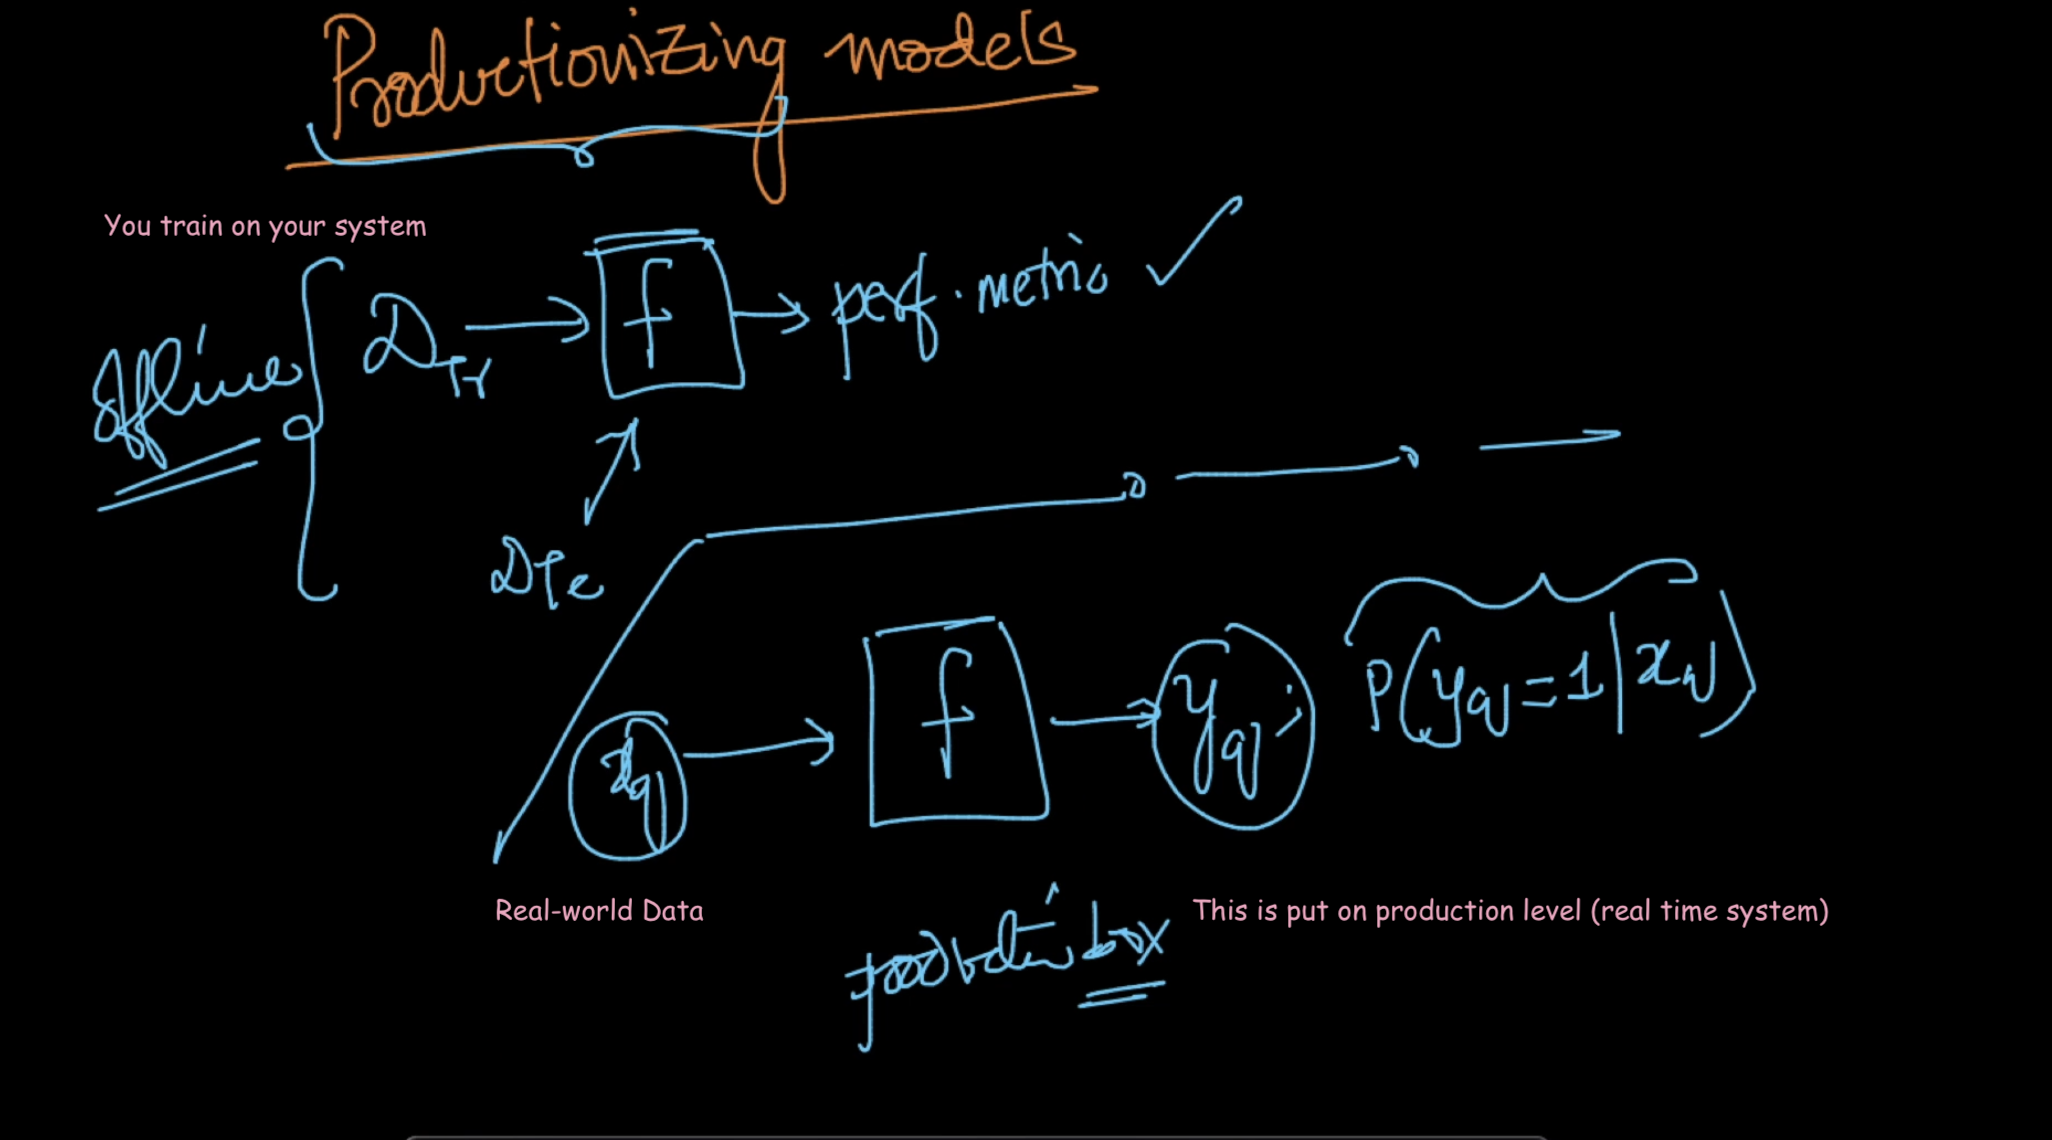 Productionizing models
You train on your system
Offline
D_Tr → f → perf. metric ✓
D_Te
x_q → f → y_q ; P(y_q = 1 | x_q)
Real-world Data
production box
This is put on production level (real time system)